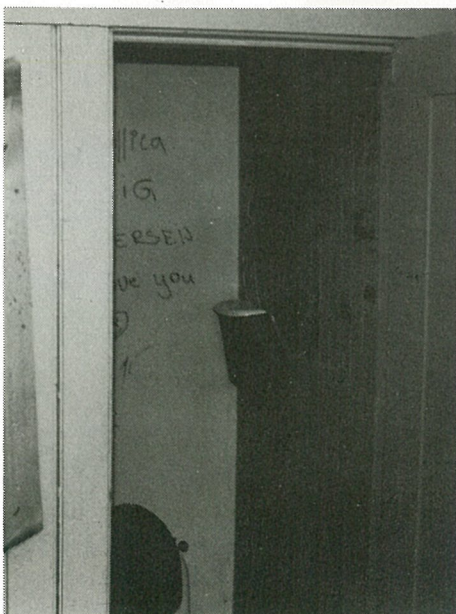 llica
IG
ERSEN
ve you